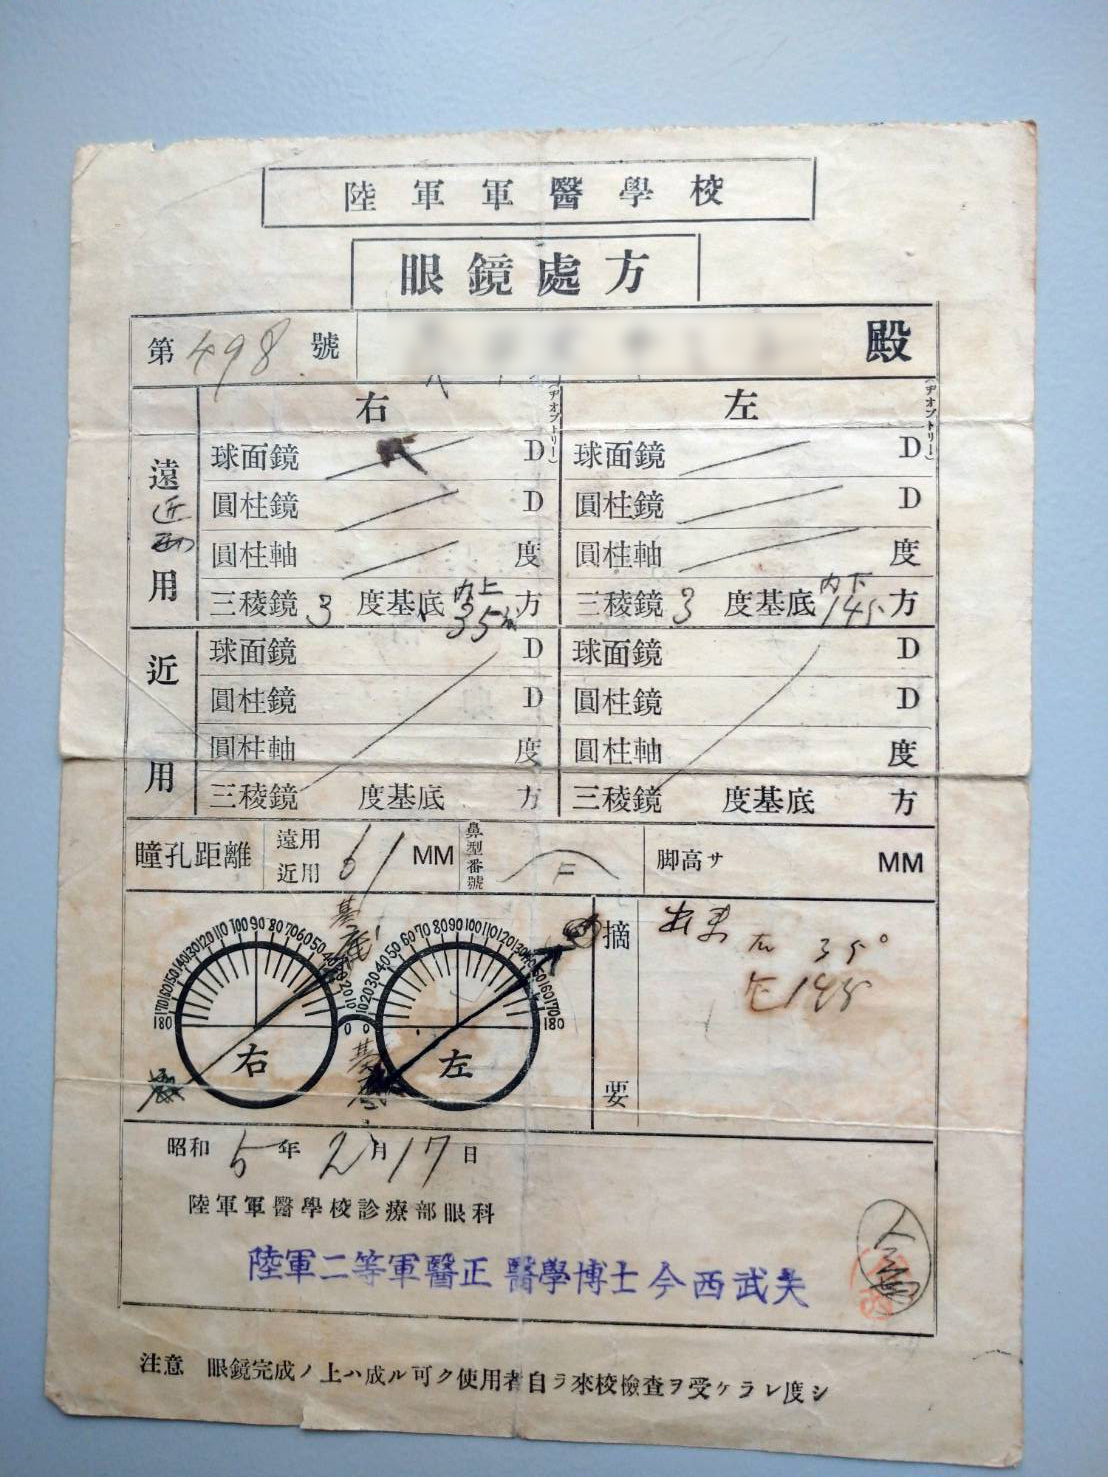 陸軍軍醫學校
眼鏡處方
第498號 殿
右 (ヂオプトリー) 左 (ヂオプトリー)
遠近両用
球面鏡 D 球面鏡 D
圓柱鏡 D 圓柱鏡 D
圓柱軸 度 圓柱軸 度
三稜鏡 3 度基底 内上 35 方 三稜鏡 3 度基底 内下 145 方
近用
球面鏡 D 球面鏡 D
圓柱鏡 D 圓柱鏡 D
圓柱軸 度 圓柱軸 度
三稜鏡 度基底 方 三稜鏡 度基底 方
瞳孔距離 遠用 近用 61 MM 鼻型番號 F 脚高サ MM
摘要
右 35°
左 145
180 170 160 150 140 130 120 110 100 90 80 70 60 50 40 30 20 10 0
0 10 20 30 40 50 60 70 80 90 100 110 120 130 140 150 160 170 180
基底
右 左
基底
昭和5年2月17日
陸軍軍醫學校診療部眼科
陸軍二等軍醫正 醫學博士 今西武夫
注意 眼鏡完成ノ上ハ成ル可ク使用者自ラ來校檢查ヲ受ケラレ度シ